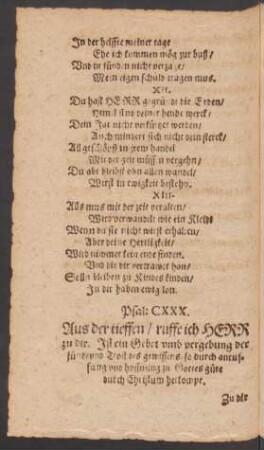 In der helffte meiner tage
Ehe ich kommen mög zur buß/
Vnd in sünden nicht verzage/
Mein eigen schuld tragen mus.
XII.
Du hast HERR gegründet die Erden/
Himel sind deiner hende werck/
Dein Jar nicht verkürtzet werden/
Auch mindert sich nicht dein sterck/
All geschöpff in jrem handel
Mit der zeit müssn vergehn/
Du abr bleibst ohn allen wandel/
Wirst in ewigkeit bestehn.
XIII.
Alls mus mit der zeit veralten/
Wird verwandelt wie ein Kleid
Wenn du sie nicht wirst erhalten/
Aber deine Herrligkeit/
Wird nimmer kein ende finden.
Vnd die dir vertrawet han/
Selln bleiben zu Kindes kinden/
In dir haben ewig lon.
Psal: CXXX.
Aus der tieffen/ ruffe ich HERR
zu dir. Ist ein Gebet vmb vergebung der
sünde vnd Trost des gewissens/ so durch anruf-
fung vnd hoffnung zu Gottes güte
durch Christum herkompt.
Zu dir